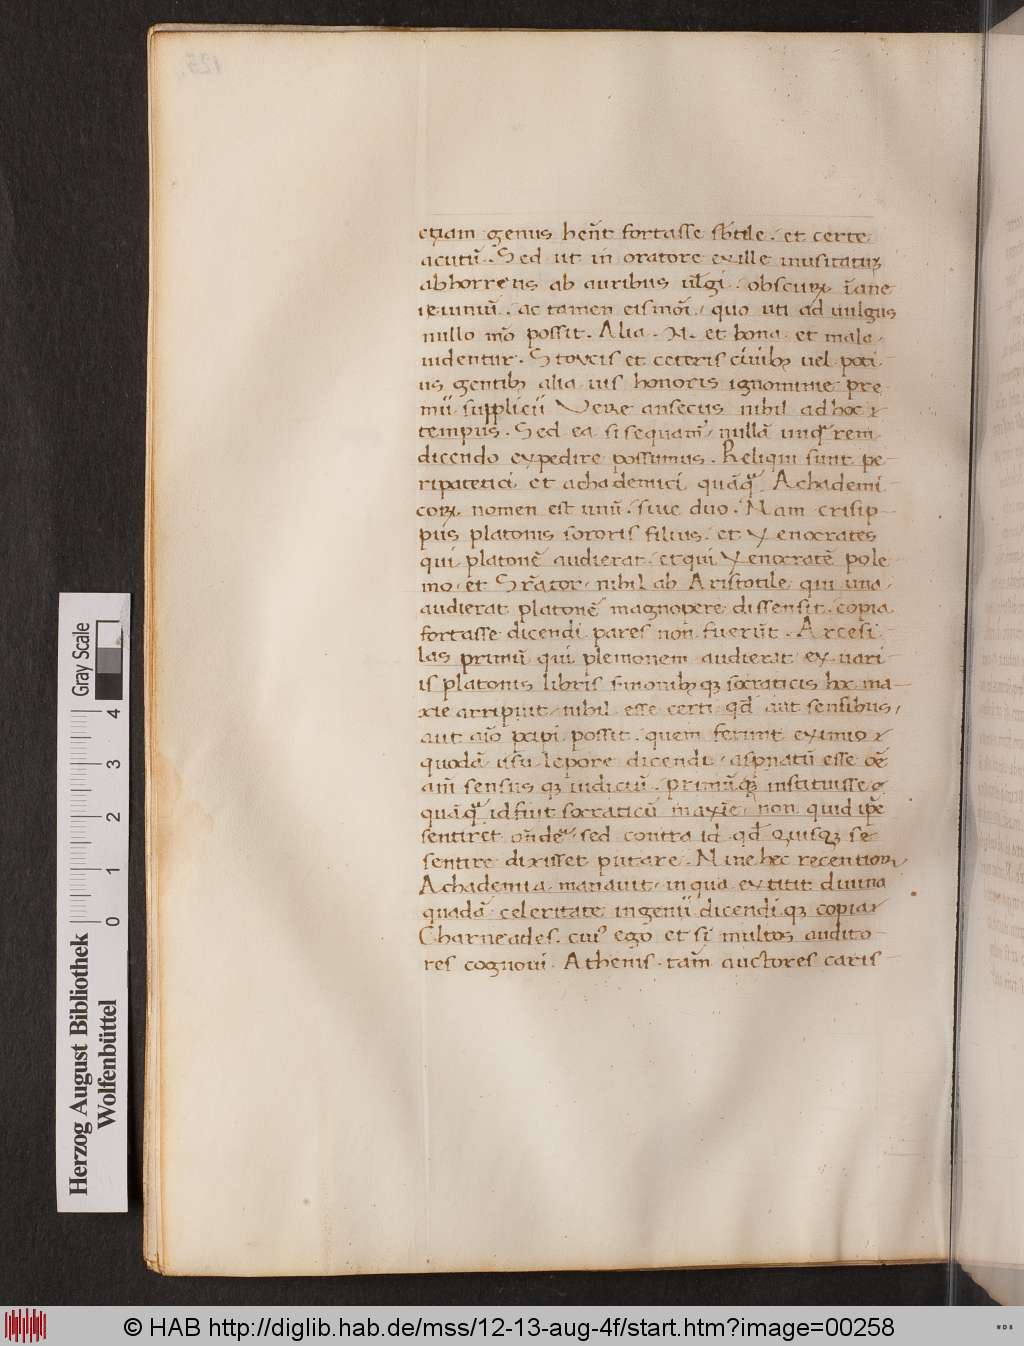 125.
etiam genus hen̄t fortasse sbtile. et certe
acutū. Sed ut in oratore exille inusitatuꝫ
abhorrens ab auribus ul̄gi. obscuꝝ. īane
ieiunū. ac tamen eismōi. quo uti ad uulgus
nullo mō possit. Alia. N. et bona et mala
uidentur. Stoycis et ceteris ciuibꝫ uel poti
us gentibꝫ alia uis honoris ignominie pre
mii supplicii Vere ansecus nihil ad hoc
tempus. Sed ea si sequam̄ nullā unqꝫ rem
dicendo expedire possumus. Reliqui sunt pe
ripatetici et achademici quāqꝫ Achademi
coꝝ. nomen est unū. siue duo. Nam crisip
pus platonis sororis filius. et Xenocrates
qui platonē audierat. et qui Xenocratē pole
mo. et Srātor. nihil ab Aristotile qui una
audierat platonē magnopere dissensit. copia
fortasse dicendi pares non fuerūt. Arcesi
las primū qui plemonem audierat ex uari
is platonis libris sinonibꝫ qꝫ socraticis hoc ma
xie arripuit. nihil esse certi qd̄ aut sensibus
aut aīo pcipi possit. quem ferunt eximio
quodā usū lepore dicendi. aspnatū esse oē
aīi sensus qꝫ iudiciū. primūqꝫ instituisse
quāqꝫ id fuit socraticū maxīe. non quid ip̄e
sentiret on̄dē. sed contra id qd̄ Quisqꝫ se
sentire dixisset putare. Nine hec recentior
Achademia manauit. in qua extitit diuina
quadā celeritate ingenii dicendi qꝫ copia
Charneades. cuiꝰ ego et si multos audito
res cognoui. Athenis. tam̄ auctores caris
Herzog August Bibliothek
Wolfenbüttel
Gray Scale
0 1 2 3 4
© HAB http://diglib.hab.de/mss/12-13-aug-4f/start.htm?image=00258